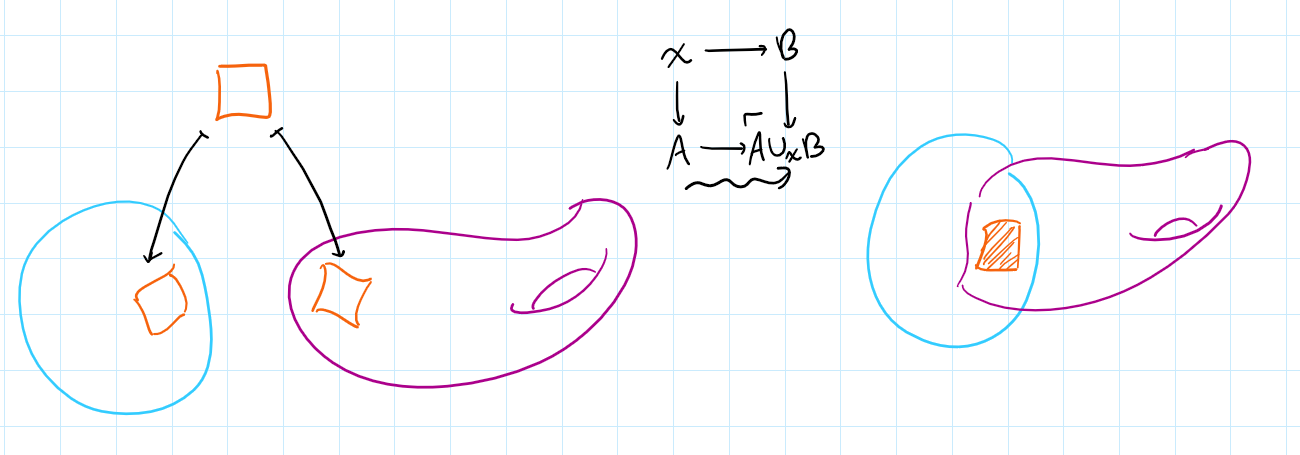 x → B
↓ ↓
A → A∪ₓB